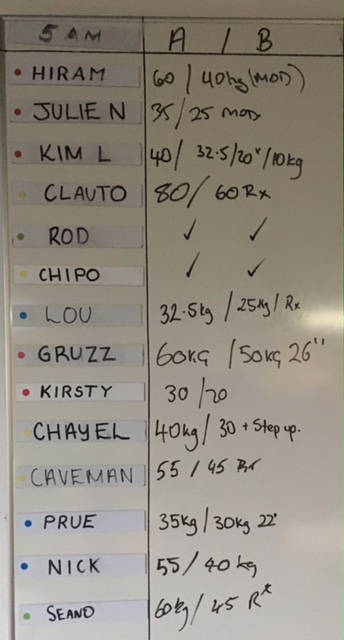 5 AM A / B
HIRAM 60 / 40kg (MOD)
JULIE N 35 / 25 MOD
KIM L 40 / 32.5/20"/10kg
CLAUTO 80 / 60 Rx
ROD ✓ ✓
CHIPO ✓ ✓
LOU 32.5kg / 25kg / Rx
GRUZZ 60KG / 50KG 26"
KIRSTY 30 / 20
CHAYEL 40kg / 30 + Step up.
CAVEMAN 55 / 45 Rx
PRUE 35kg / 30kg 22"
NICK 55 / 40 kg
SEAND 60kg / 45 Rx